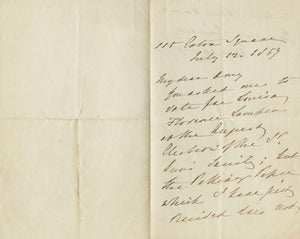 115 Eaton Square
July 12. 1859
My dear Amy
You asked me to
vote for Louisa
Florence
at the August
Election of the
Society; but
the Polling Paper
which I have just
received does not